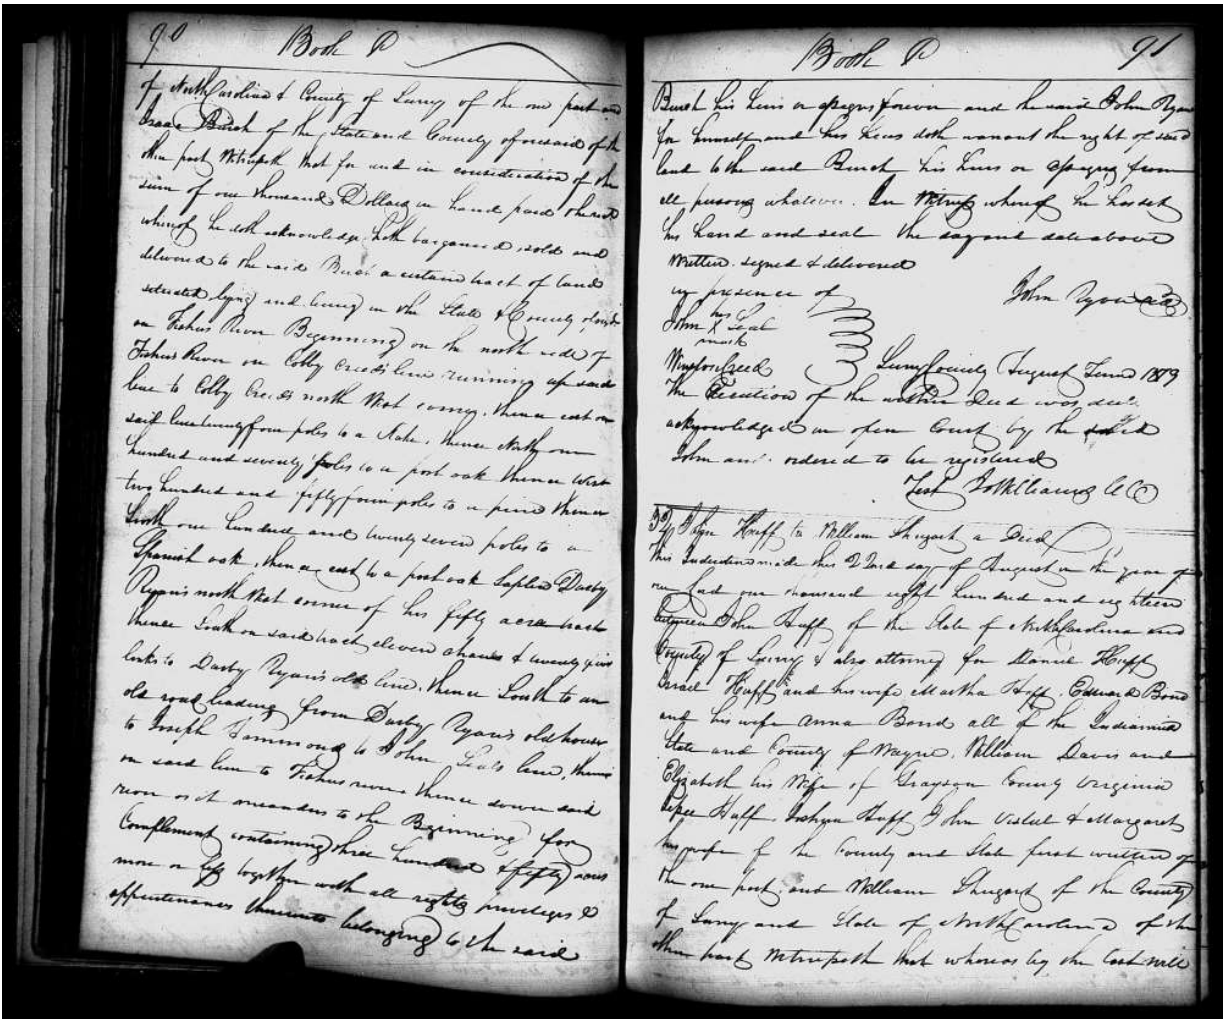 90 Book P
of North Carolina & County of Surry of the one part and
Isaac Burch of the State and County aforesaid of the
other part Witnesseth that for and in consideration of the
sum of one thousand Dollars in hand paid the
whereof he doth acknowledge hath bargained sold and
delivered to the said Burch a certain tract of land
situated lying and being in the State & County aforesd
on Fishers River Beginning on the north side of
Fishers River on Colby Creeds line running up said
line to Colby Creeds north West corner, thence east on
said line twenty four poles to a Stake, thence North one
hundred and seventy poles to a post oak thence West
two hundred and fifty four poles to a pine thence
South one hundred and twenty seven poles to a
Spanish oak, thence east to a post oak Saplin Darby
Ryan's north West corner of his fifty acre tract
thence South on said tract eleven chains & twenty five
links to Darby Ryan's old line, thence South to an
old road leading from Darby Ryan's old house
to Joseph Tommons to John Seals line, thence
on said line to Fishers river thence down said
river as it meanders to the Beginning for
Complement containing three hundred & fifty acres
more or less together with all rights privileges &
appurtenances thereunto belonging to the said
Book P 91
Burch his heirs or assigns forever and the said John Ryan
for himself and his heirs doth warrant the right of said
land to the said Burch his heirs or assigns from
all persons whatever. In Witness whereof he has set
his hand and seal the day and date above
written. signed & delivered
in presence of John Ryan
his
John X Seal
mark
Winston Creed
Surry County August Term 1819
The Execution of the within Deed was
acknowledged in open Court by the said
John and ordered to be registered
Test Jo Williams CC
John Huff to William Shugart a Deed
This Indenture made this 22nd day of August in the year of
our Lord one thousand eight hundred and eighteen
between John Huff of the State of North Carolina and
County of Surry & also attorney for Daniel Huff
Israel Huff and his wife Martha Huff, Edward Bond
and his wife Anna Bond all of the Indianna
State and County of Wayne, William Davis and
Elizabeth his Wife of Grayson County Virginia
Huff, Joshua Huff, John Vestal & Margaret
his wife of the County and State first written of
the one part, and William Shugart of the County
of Surry and State of North Carolina of the
other part Witnesseth that whereas by the last will